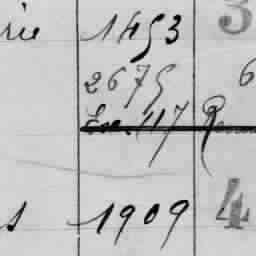 rie 1453 3
2675 6
Ex. 117
s 1909 4